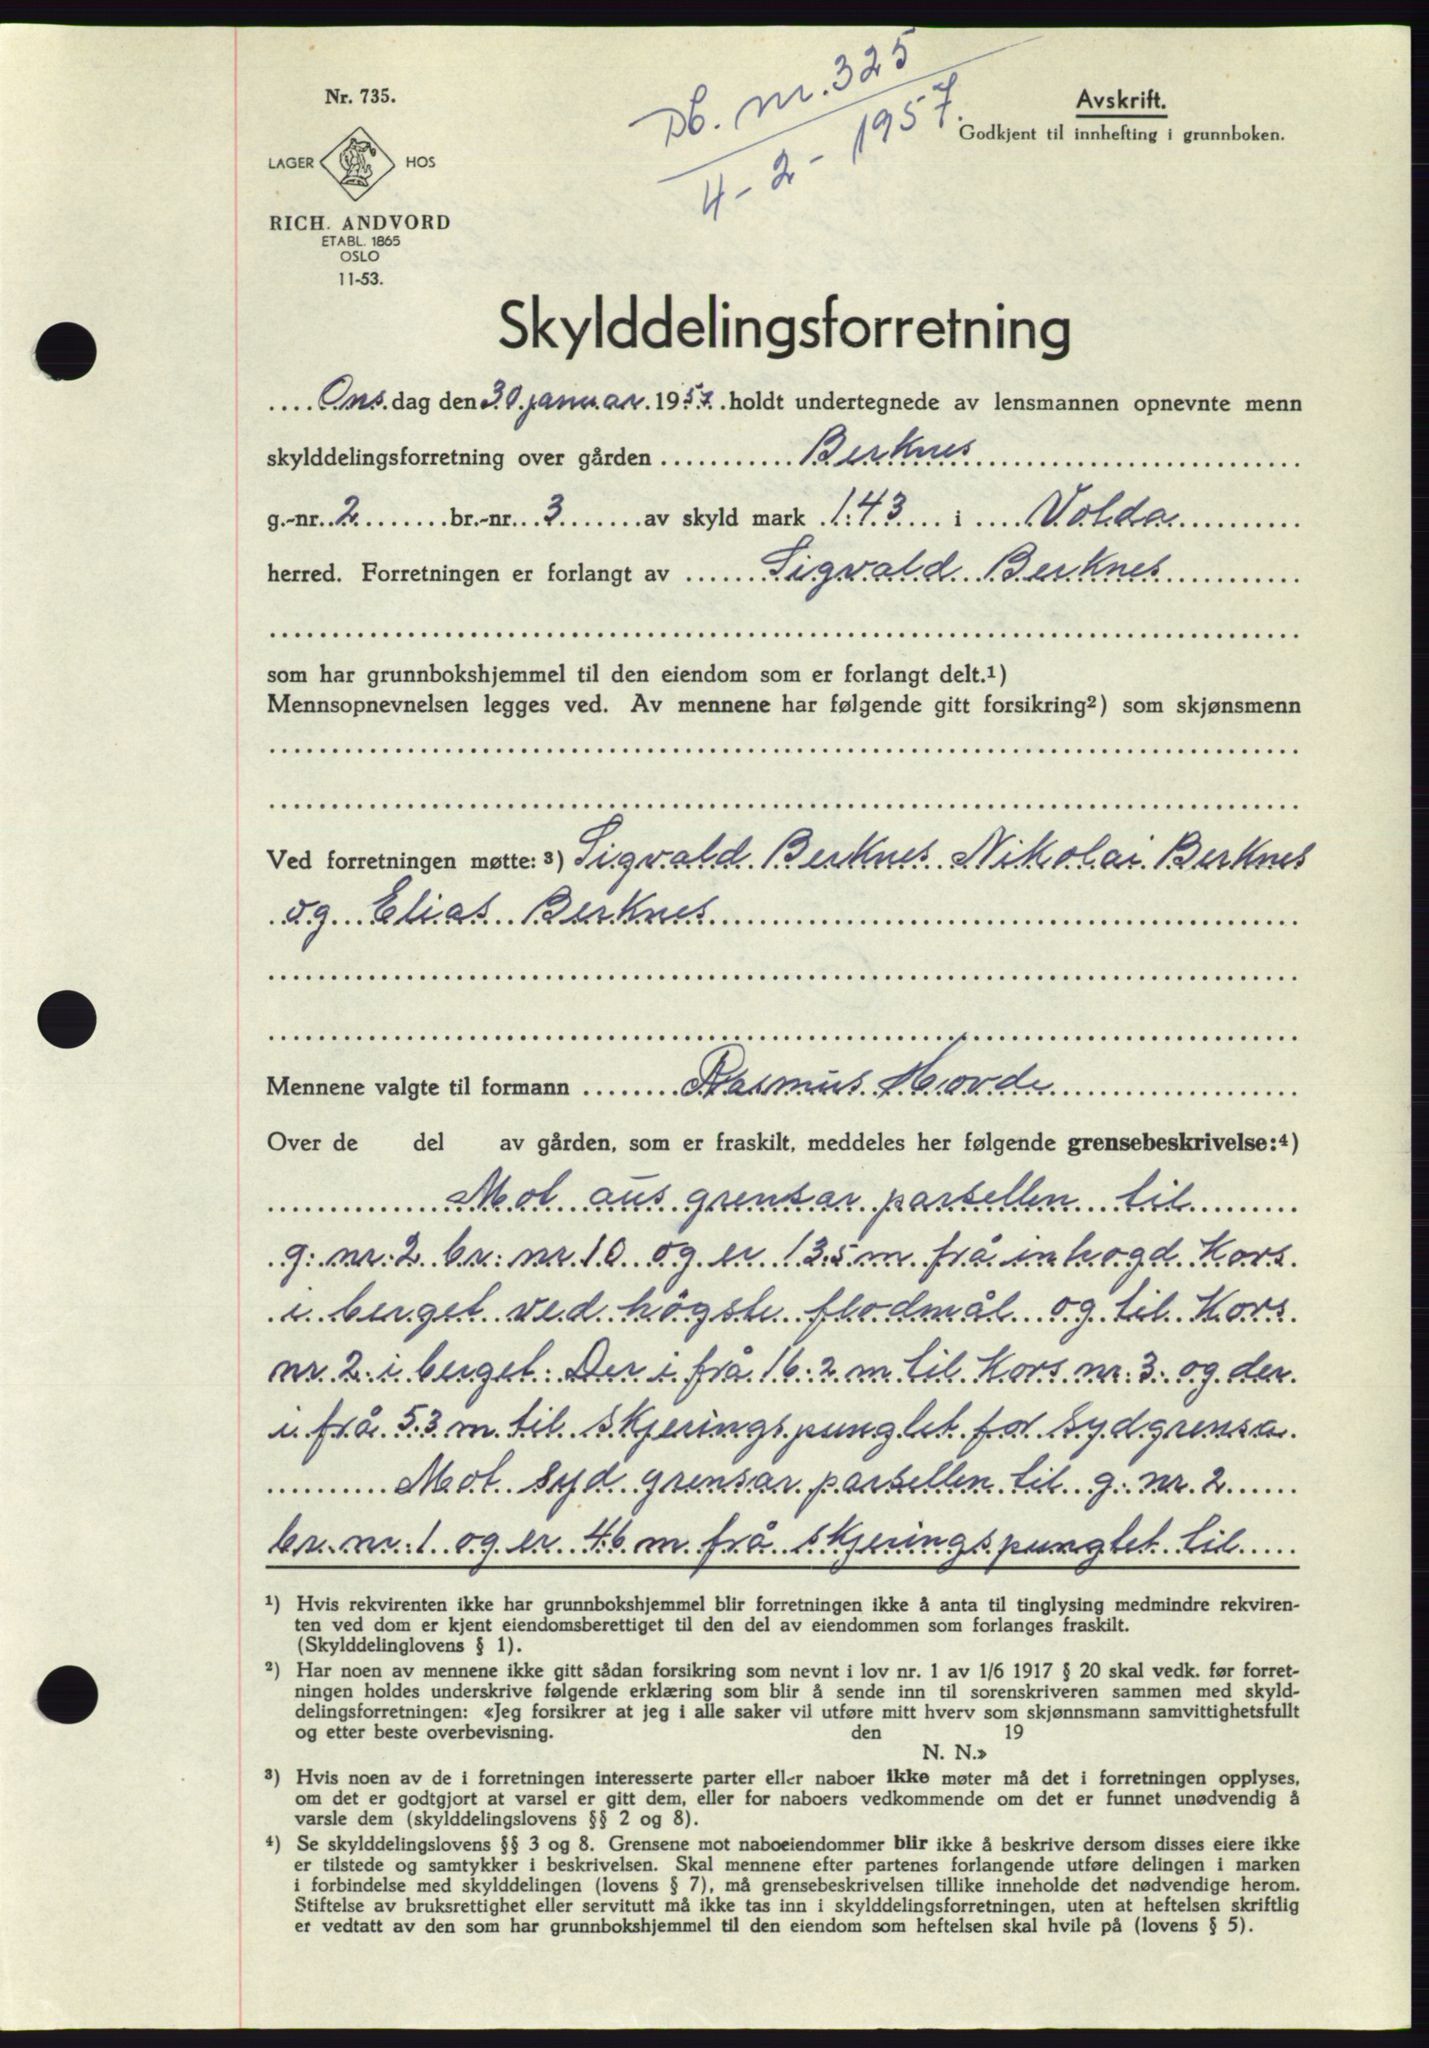 Nr. 735.
LAGER HOS
RICH. ANDVORD
ETABL. 1865
OSLO
11-53.
Db. nr. 325
4-2-1957.
Avskrift.
Godkjent til innhefting i grunnboken.
Skylddelingsforretning
Ons dag den 30 januar 1957 holdt undertegnede av lensmannen opnevnte menn
skylddelingsforretning over gården Berknes
g.-nr. 2 br.-nr. 3 av skyld mark 1.43 i Volda
herred. Forretningen er forlangt av Sigvald Berknes
som har grunnbokshjemmel til den eiendom som er forlangt delt.1)
Mennsopnevnelsen legges ved. Av mennene har følgende gitt forsikring2) som skjønsmenn
Ved forretningen møtte: 3) Sigvald Berknes Nikolai Berknes
og Elias Berknes
Mennene valgte til formann Rasmus Hovde
Over de del av gården, som er fraskilt, meddeles her følgende grensebeskrivelse:4)
Mot aus grensar parsellen til
g. nr. 2 br. nr. 10 og er 13.5 m frå inhogd Kors
i berget ved högste flodmål og til Kors
nr 2 i berget. Der i frå 16.2 m til Kors nr. 3 og der
i frå 53 m til skjeringspunglet for sydgrensa
Mot syd grensar parsellen til g. nr. 2
br. nr. 1 og er 46 m frå skjeringspungtet til
1) Hvis rekvirenten ikke har grunnbokshjemmel blir forretningen ikke å anta til tinglysing medmindre rekviren-
ten ved dom er kjent eiendomsberettiget til den del av eiendommen som forlanges fraskilt.
(Skylddelinglovens § 1).
2) Har noen av mennene ikke gitt sådan forsikring som nevnt i lov nr. 1 av 1/6 1917 § 20 skal vedk. før forret-
ningen holdes underskrive følgende erklæring som blir å sende inn til sorenskriveren sammen med skyld-
delingsforretningen: «Jeg forsikrer at jeg i alle saker vil utføre mitt hverv som skjønnsmann samvittighetsfullt
og etter beste overbevisning. den 19
N. N.»
3) Hvis noen av de i forretningen interesserte parter eller naboer ikke møter må det i forretningen opplyses,
om det er godtgjort at varsel er gitt dem, eller for naboers vedkommende om det er funnet unødvendig å
varsle dem (skylddelingslovens §§ 2 og 8).
4) Se skylddelingslovens §§ 3 og 8. Grensene mot naboeiendommer blir ikke å beskrive dersom disses eiere ikke
er tilstede og samtykker i beskrivelsen. Skal mennene efter partenes forlangende utføre delingen i marken
i forbindelse med skylddelingen (lovens § 7), må grensebeskrivelsen tillike inneholde det nødvendige herom.
Stiftelse av bruksrettighet eller servitutt må ikke tas inn i skylddelingsforretningen, uten at heftelsen skriftlig
er vedtatt av den som har grunnbokshjemmel til den eiendom som heftelsen skal hvile på (lovens § 5).